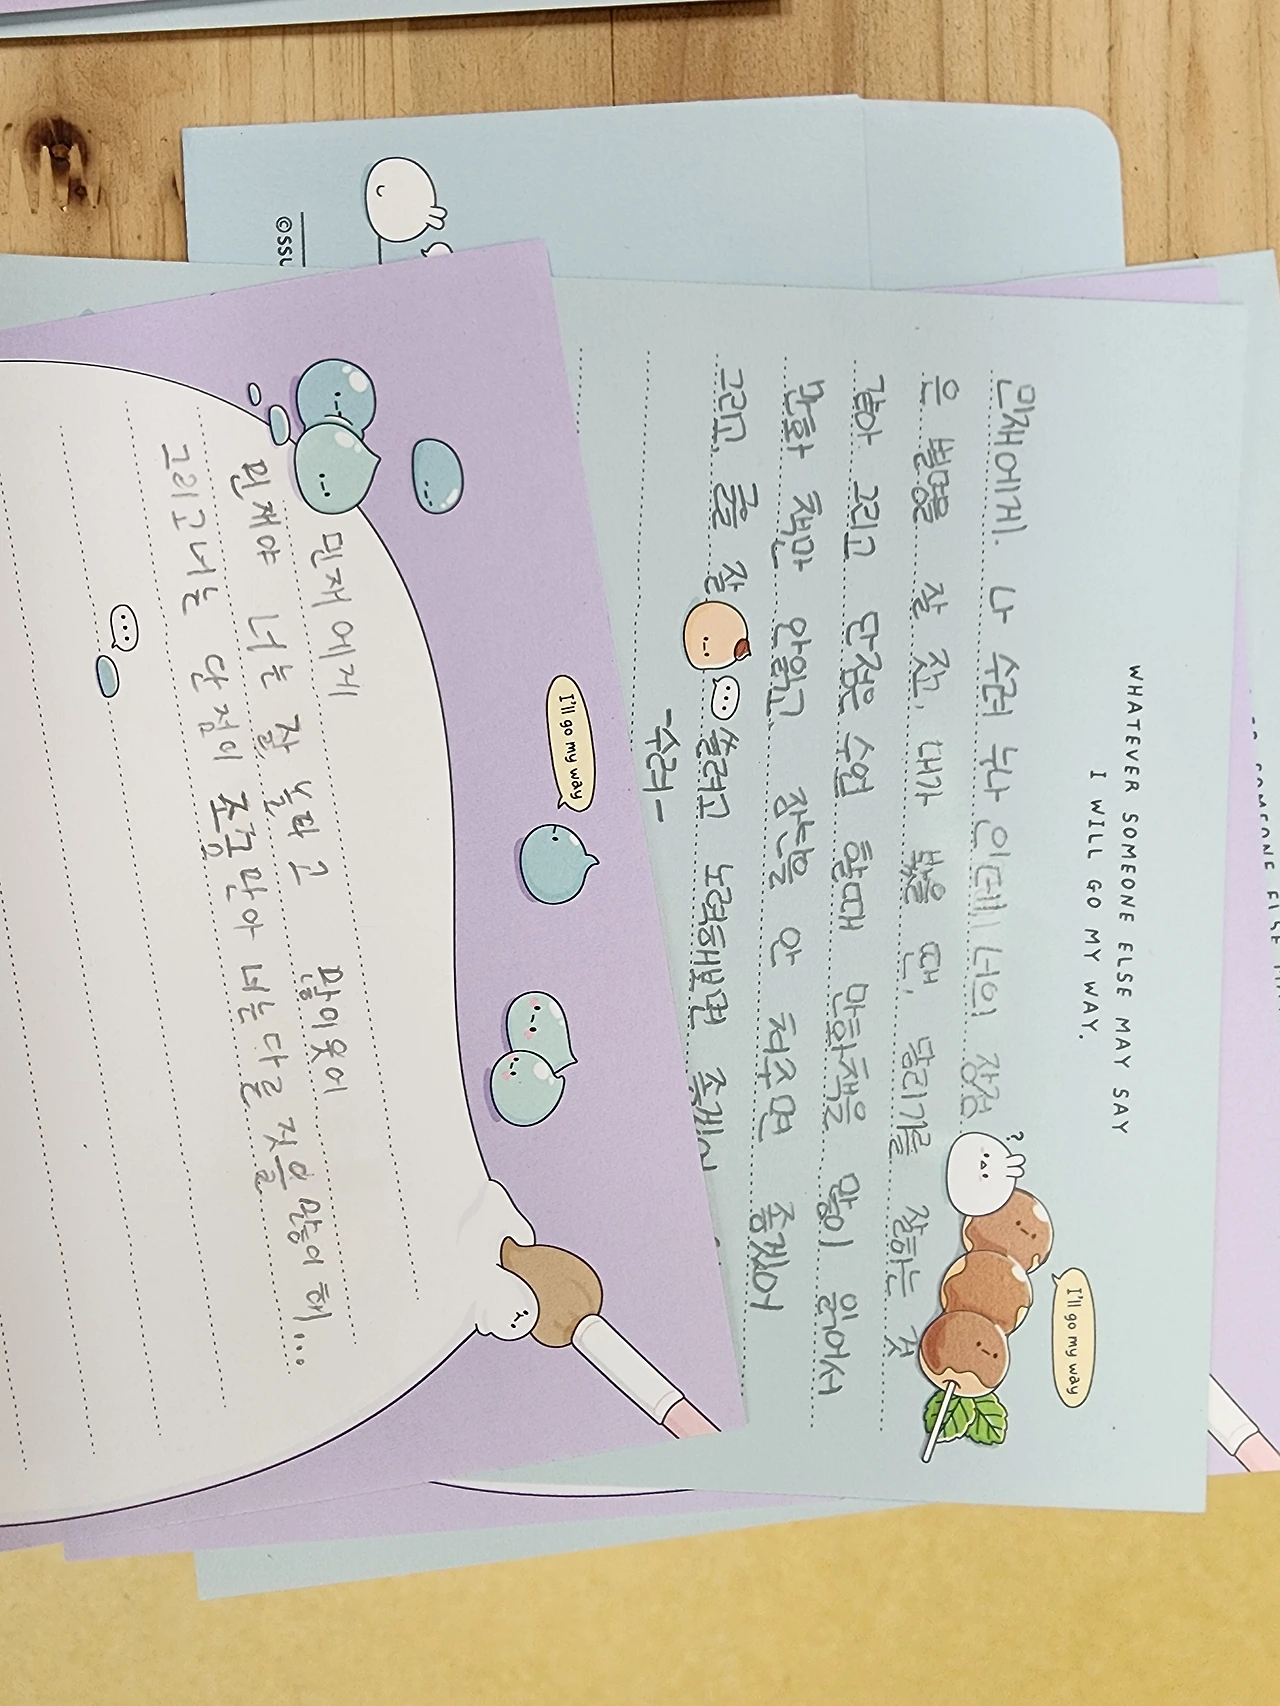 WHATEVER SOMEONE ELSE MAY SAY
I WILL GO MY WAY.
I'll go my way
?
민재에게. 나 수려 누나 인데 너의 장점
은 벌명을 잘 짓고, 내가 봤을 땐, 달리기를 잘하는 것
같아 그리고 단점은 수업 할때 만화책을 많이 읽어서
만화 책만 안읽고, 장난을 안 쳐주면 좋겠어
그리고, 글을 잘 쓸려고 노력해보면 좋게어
-수려-
I'll go my way
민재에게
민재야 너는 잘 놀라고 많이웃어
그리고 너는 단점이 조금만아 너는 다른 짓을 만이 해...
©SSU